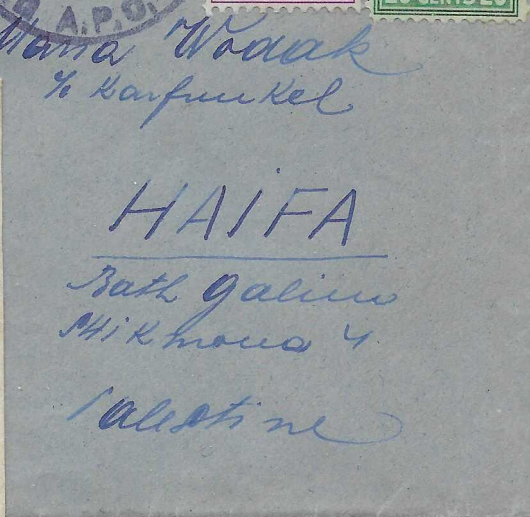 A.P.O.
20 CENTS 20
Maria Wodak
c/o Karfunkel
HAIFA
Bath Galim
Palestine